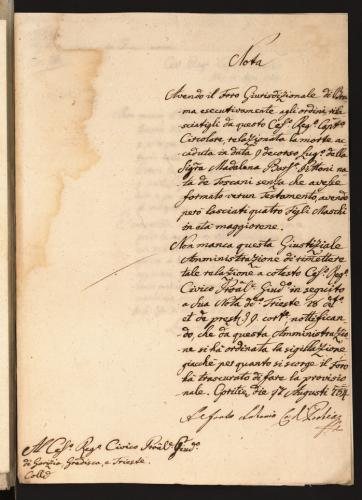 Nota
Avendo il Foro Giurisdizionale di
ma esecutivamente agli ordini rila
sciatigli da questo Ces.º Reg.º Capit.º
Circolare, relazionata la morte ac
caduta in data 9 decorso Lug.º della
Sig.ra Madalena Pittoni na
ta de Toscani senza che avesse
formato verun Testamento, avendo
però lasciati quatro figli Maschi
in età maggiorene.
Non manca questa Giustiziale
Amministrazione di rimettere
tale relazione a cotesto Ces.º Reg.º
Civico Prov.le Giud.º in seguito
a Sua Nota de Trieste 28 d.º
et de prest. 39 cor.te, nottifican
do, che da questa Amministrazio
ne si hà ordinata la sigillazione
giacchè per quanto si scorge il Foro
hà trascurato di fare la provisio
nale. Goritie die 17 Augusti 1784
Al Ces.º Reg.º Civico Prov.le Giud.º
di Gorizia Gradisca, e Trieste.
Coll.º